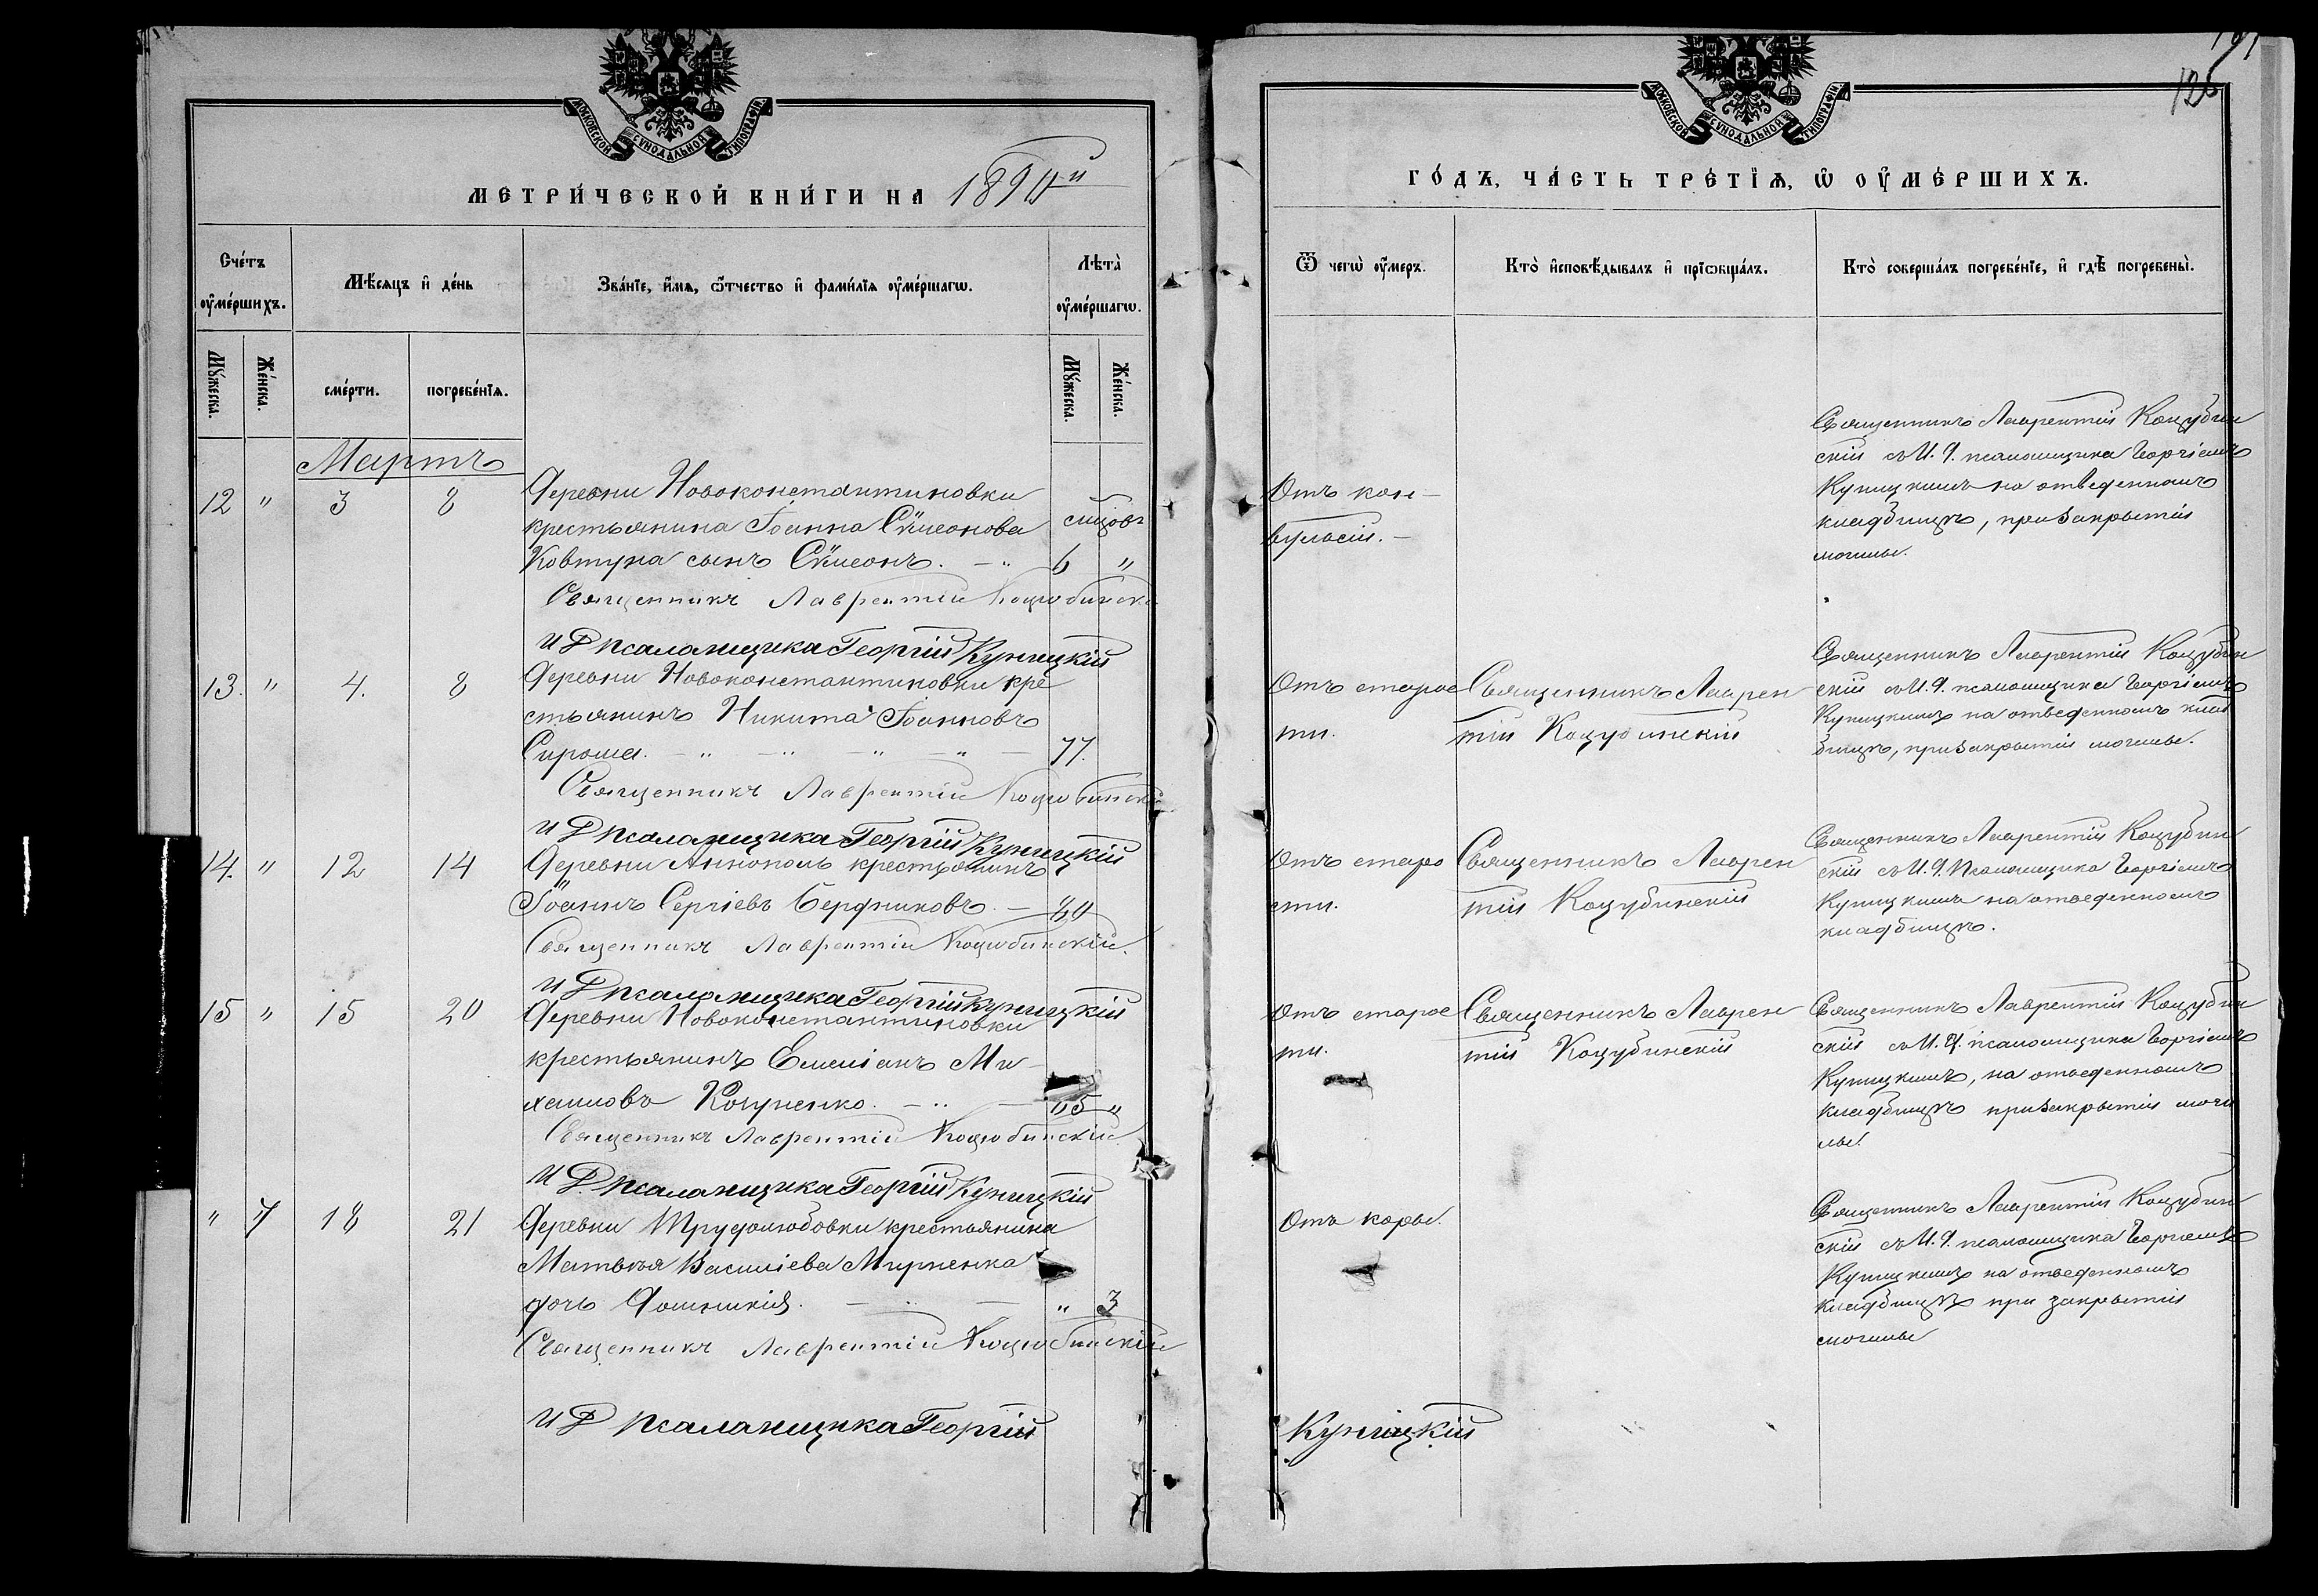 МОСКОВСКОЙ СѴНОДАЛЬНОЙ ТИПОГРАФІИ
МЕТРИ́ЧЕСКОЙ КНИ́ГИ НА
Сче́тъ оу҆ме́ршихъ.
Мѣ́сяцъ и҆ де́нь
Зва́нїе, и҆́мѧ, ѻ҆́тчество и҆ фами́лїѧ оу҆ме́ршагѡ.
Лѣта̀ оу҆ме́ршагѡ.
Мꙋ́жеска.
Же́нска.
сме́рти.
погребе́нїѧ.
Мꙋ́жеска.
Же́нска.
Мартъ
12 " 3 8 Деревни Новоконстантиновки
крестьянина Іоанна Сѵмеонова
місяцовъ
Ковтуна сынъ Сѵмеонъ. 6 "
Священникъ Лаврентій Коцюбинскі
И Д псаломщика Георгій Куницкій
13. " 4. 8 Деревни Новоконстантиновки кре
стьянинъ Никита Іоанновъ
Сироша. 77.
Священникъ Лаврентій Коцюбинскі
И Д псаломщика Георгій Куницкій
14. " 12 14 Деревни Аннополь крестьянинъ
Іоаннъ Сергіевъ Бердниковъ 80
Священникъ Лаврентій Коцюбинскій.
И Д псаломщика Георгій Куницкій
15 " 15 20 Деревни Новоконстантиновки
крестьянинъ Емеліанъ Ми-
хаиловъ 65 "
Священникъ Лаврентій Коцюбинскій
И Д. псаломщика Георгій Куницкій
" 7 18 21 Деревни Трудолюбовки крестьянина
Матвѣя Василіева Мирненка
дочь Домникія. " 3
Священникъ Лаврентій Коцюбинскій
И Д псаломщика Георгій
126
МОСКОВСКОЙ СѴНОДАЛЬНОЙ ТИПОГРАФІИ
ГО́ДЪ, ЧА́СТЬ ТРЕ́ТЇѦ, Ѡ҆ ОУ҆МЕ́РШИХЪ.
Ѿ чегѡ̀ оу҆́меръ.
Кто̀ и҆сповѣ́дывалъ и҆ прїѡбща́лъ.
Кто̀ соверша́лъ погребе́нїе, и҆ гдѣ̀ погребены̀.
Отъ кон-
вульсіи.
Священникъ Лаврентій Коцубин
скій съ И. Д. псаломщика Георгіемъ
Куницкимъ на отведенномъ
кладбищѣ, при закрытіи
могилы.
Отъ старос
ти.
Священникъ Лаврен
тій Коцубинскій
Священникъ Лаврентій Коцубин
скій съ И. Д. псаломщика Георгіемъ
Куницкимъ на отведенномъ клад
бищѣ, при закрытіи могилы.
Отъ старо
сти.
Священникъ Лаврен
тій Коцубинскій
Священникъ Лаврентій Коцубин
скій съ И. Д. Псаломщика Георгіемъ
Куницкимъ на отведенномъ
кладбищѣ.
Отъ старос
ти.
Священникъ Лаврен
тій Коцубинскій
Священникъ Лаврентій Коцубин
скій съ И. Д. псаломщика Георгіемъ
Куницкимъ, на отведенномъ
кладбищѣ при закрытіи моги
лы.
Отъ коры.
Священникъ Лаврентій Коцубин
скій съ И. Д. псаломщика Георгіемъ
Куницкимъ на отведенномъ
кладбищѣ при закрытіи
могилы
Куницкій